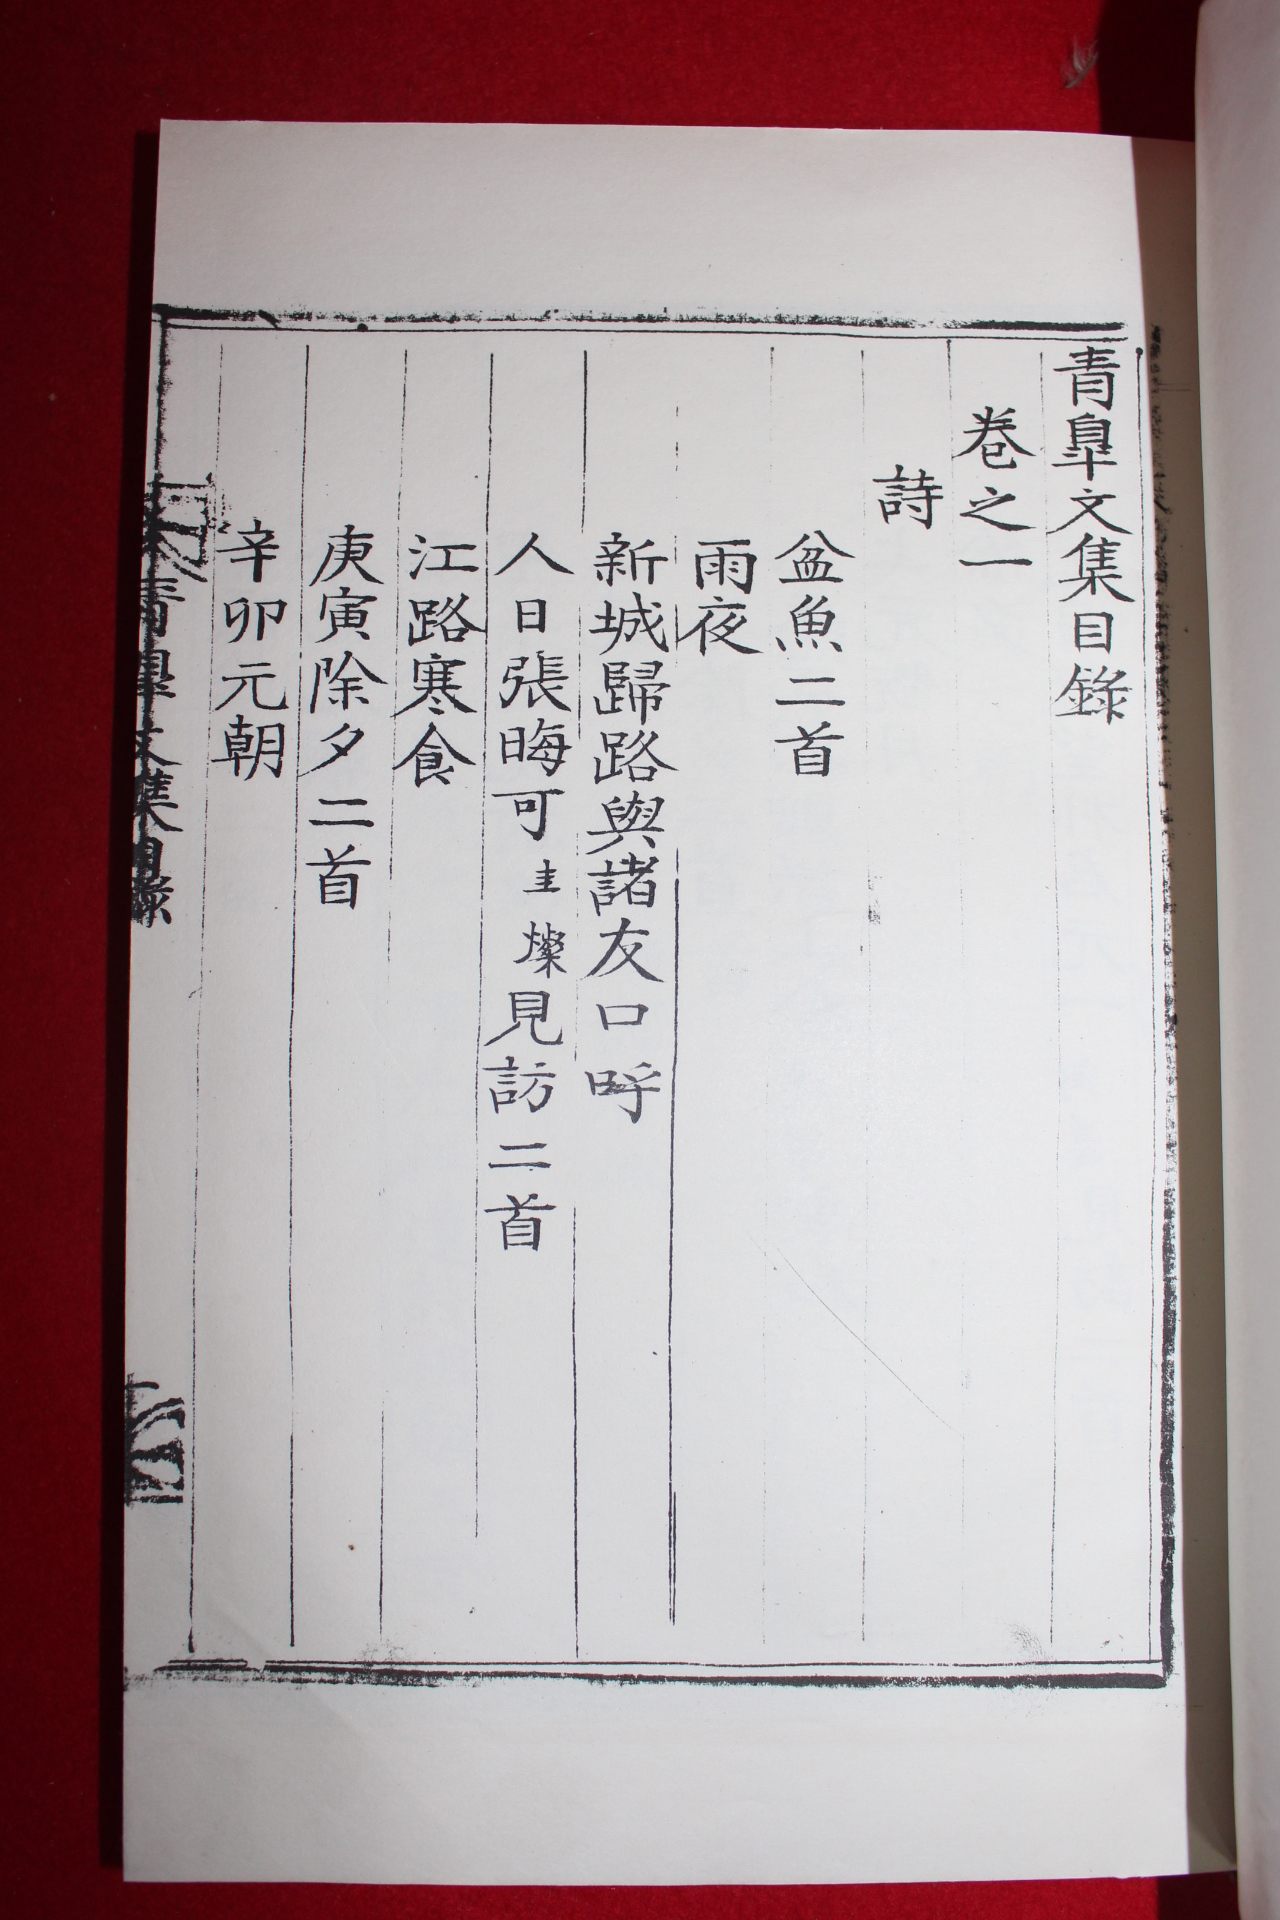 青皐文集目錄
卷之一
詩
盆魚二首
雨夜
新城歸路與諸友口呼
人日張晦可圭燦見訪二首
江路寒食
庚寅除夕二首
辛卯元朝
青皐文集目錄